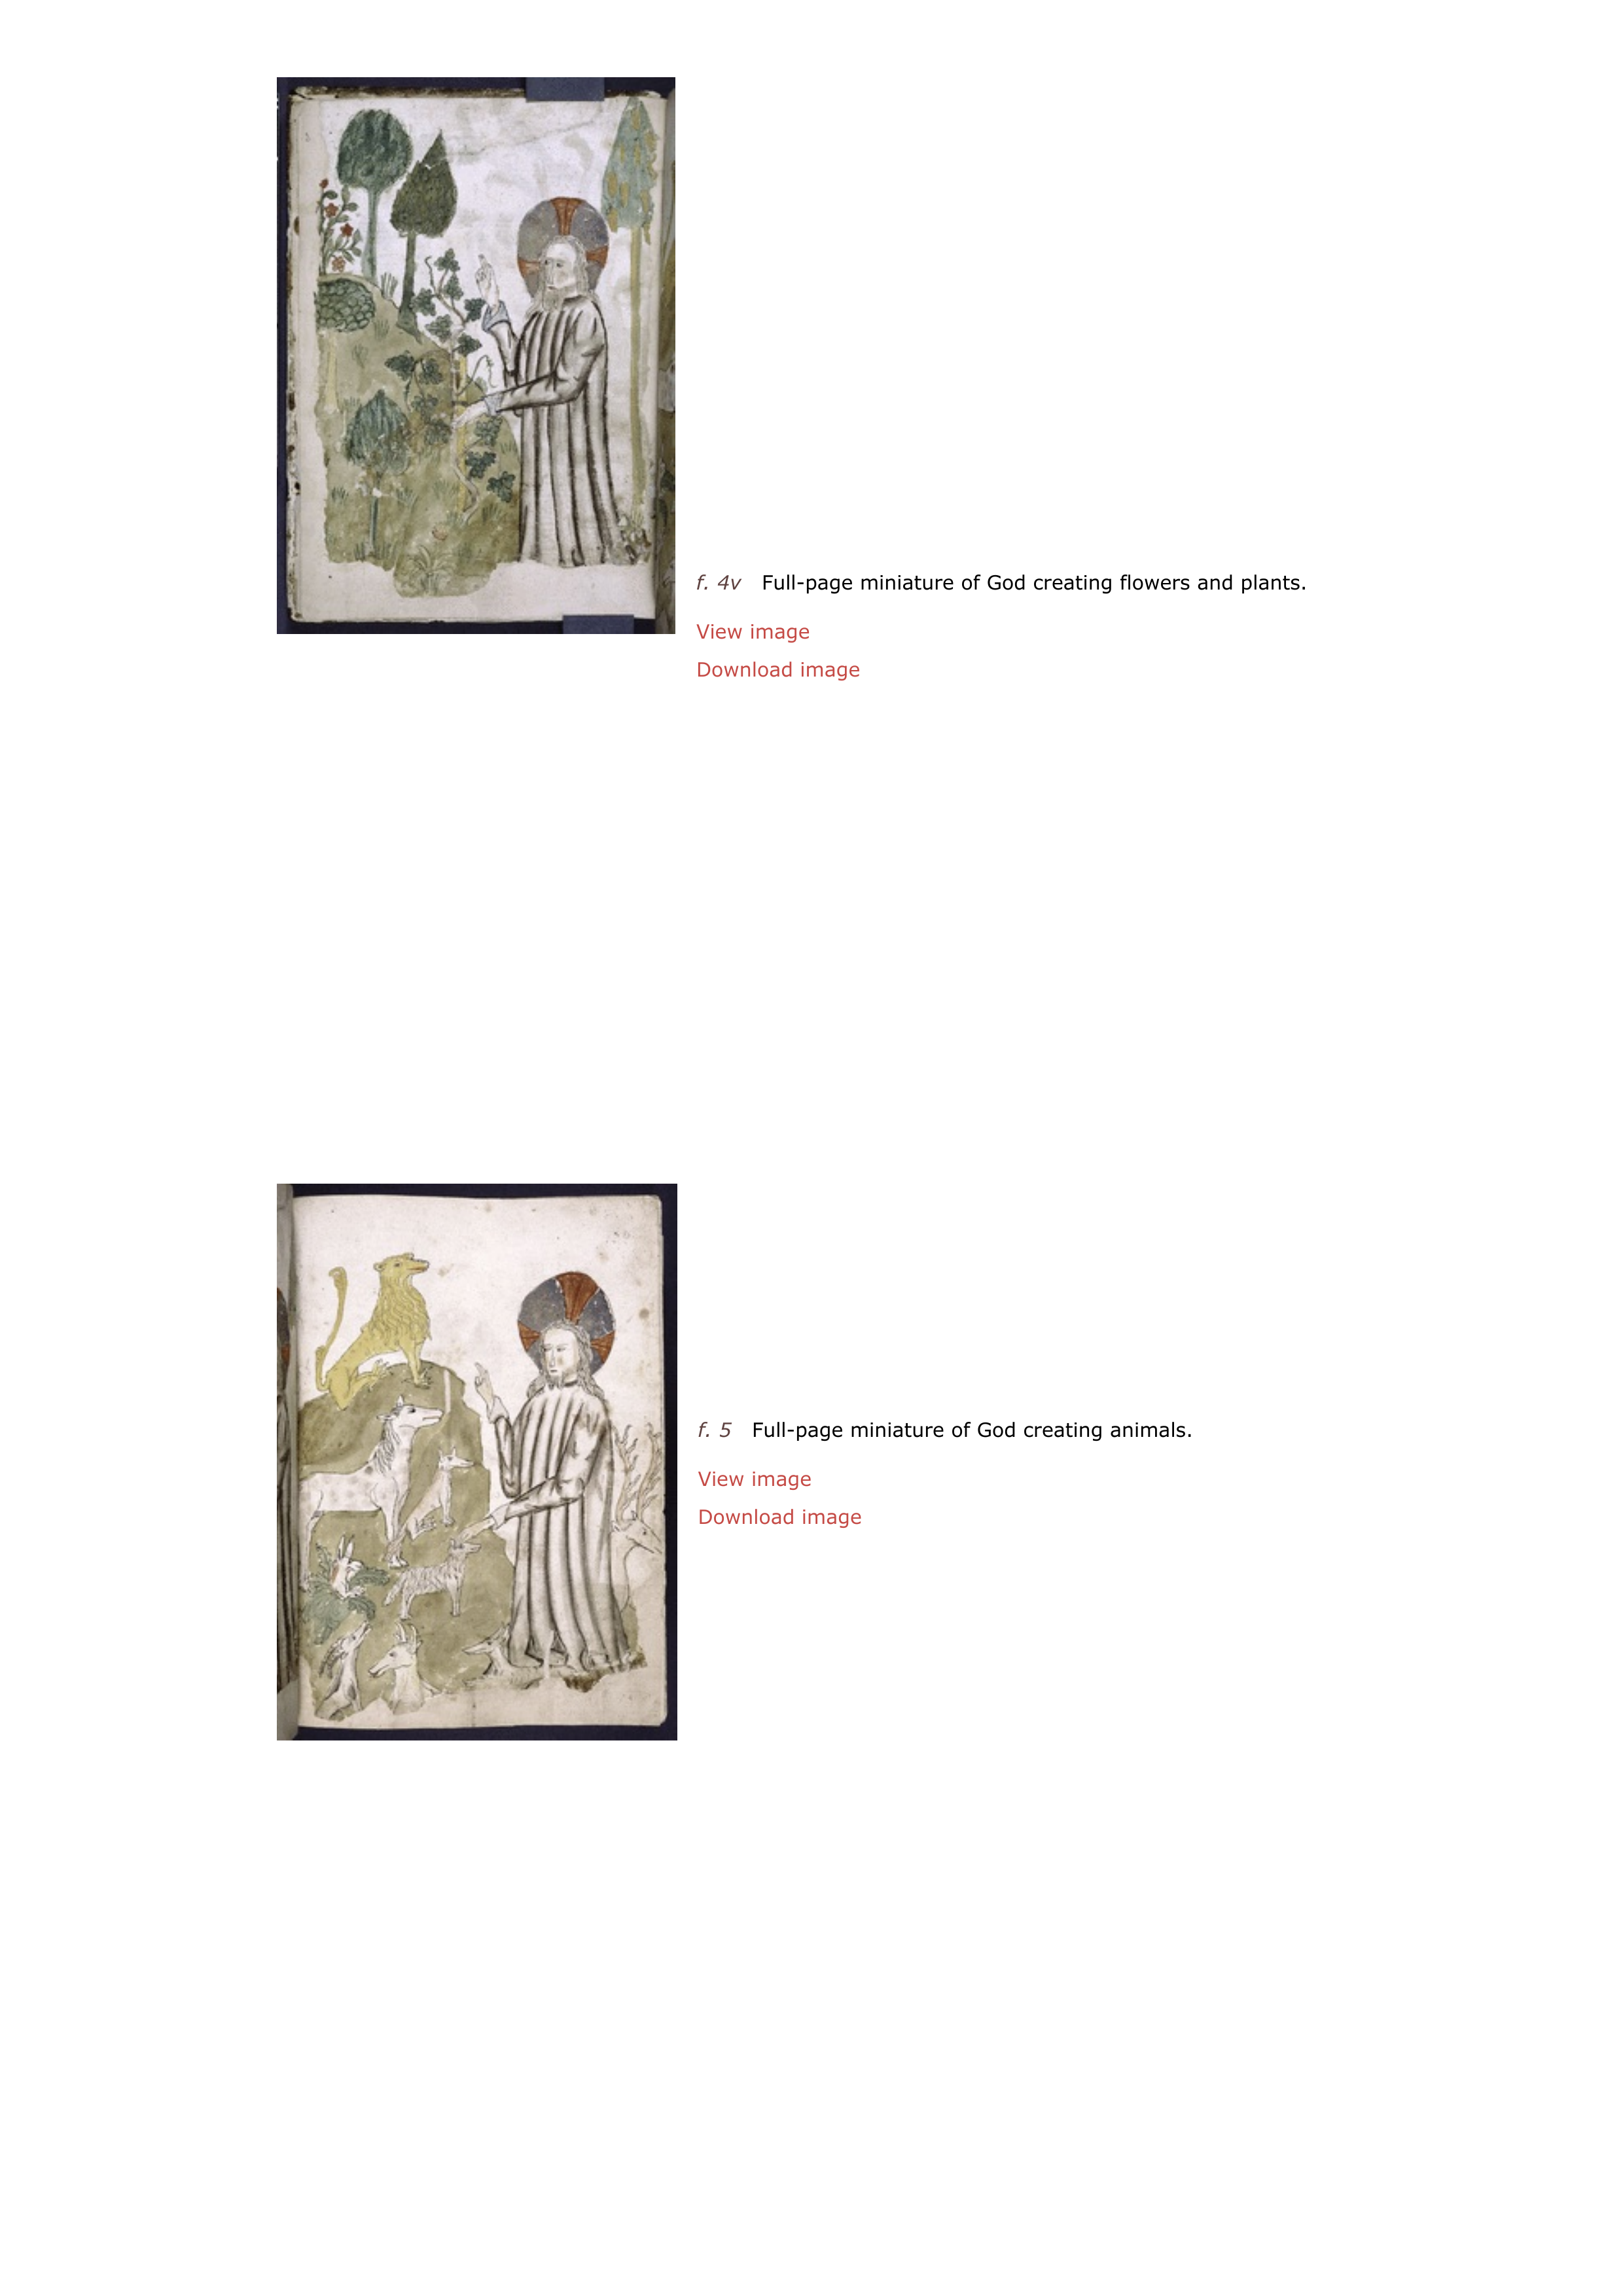 f. 4v Full-page miniature of God creating flowers and plants.
View image
Download image
f. 5 Full-page miniature of God creating animals.
View image
Download image